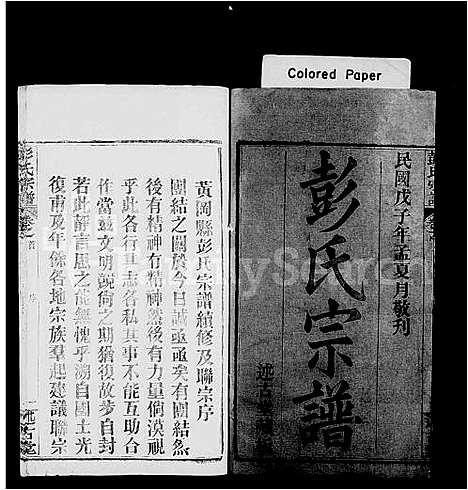 Colored Paper
民國戊子年孟夏月敬刊
彭氏宗譜
述古堂
彭氏宗譜
黃岡縣彭氏宗譜續修及聯宗序
團結之關於今日誠亟亟矣有團結然
後有精神有精神然後有力量倘漠視
乎此各行其志各私其事不能互助合
作當鼓文明銳倘之期猶復故步自封
若此靜言思之能無愧乎溯自國土光
復甫及年餘各地宗族羣起建議聯宗
彭氏宗譜
卷首
序
述古堂